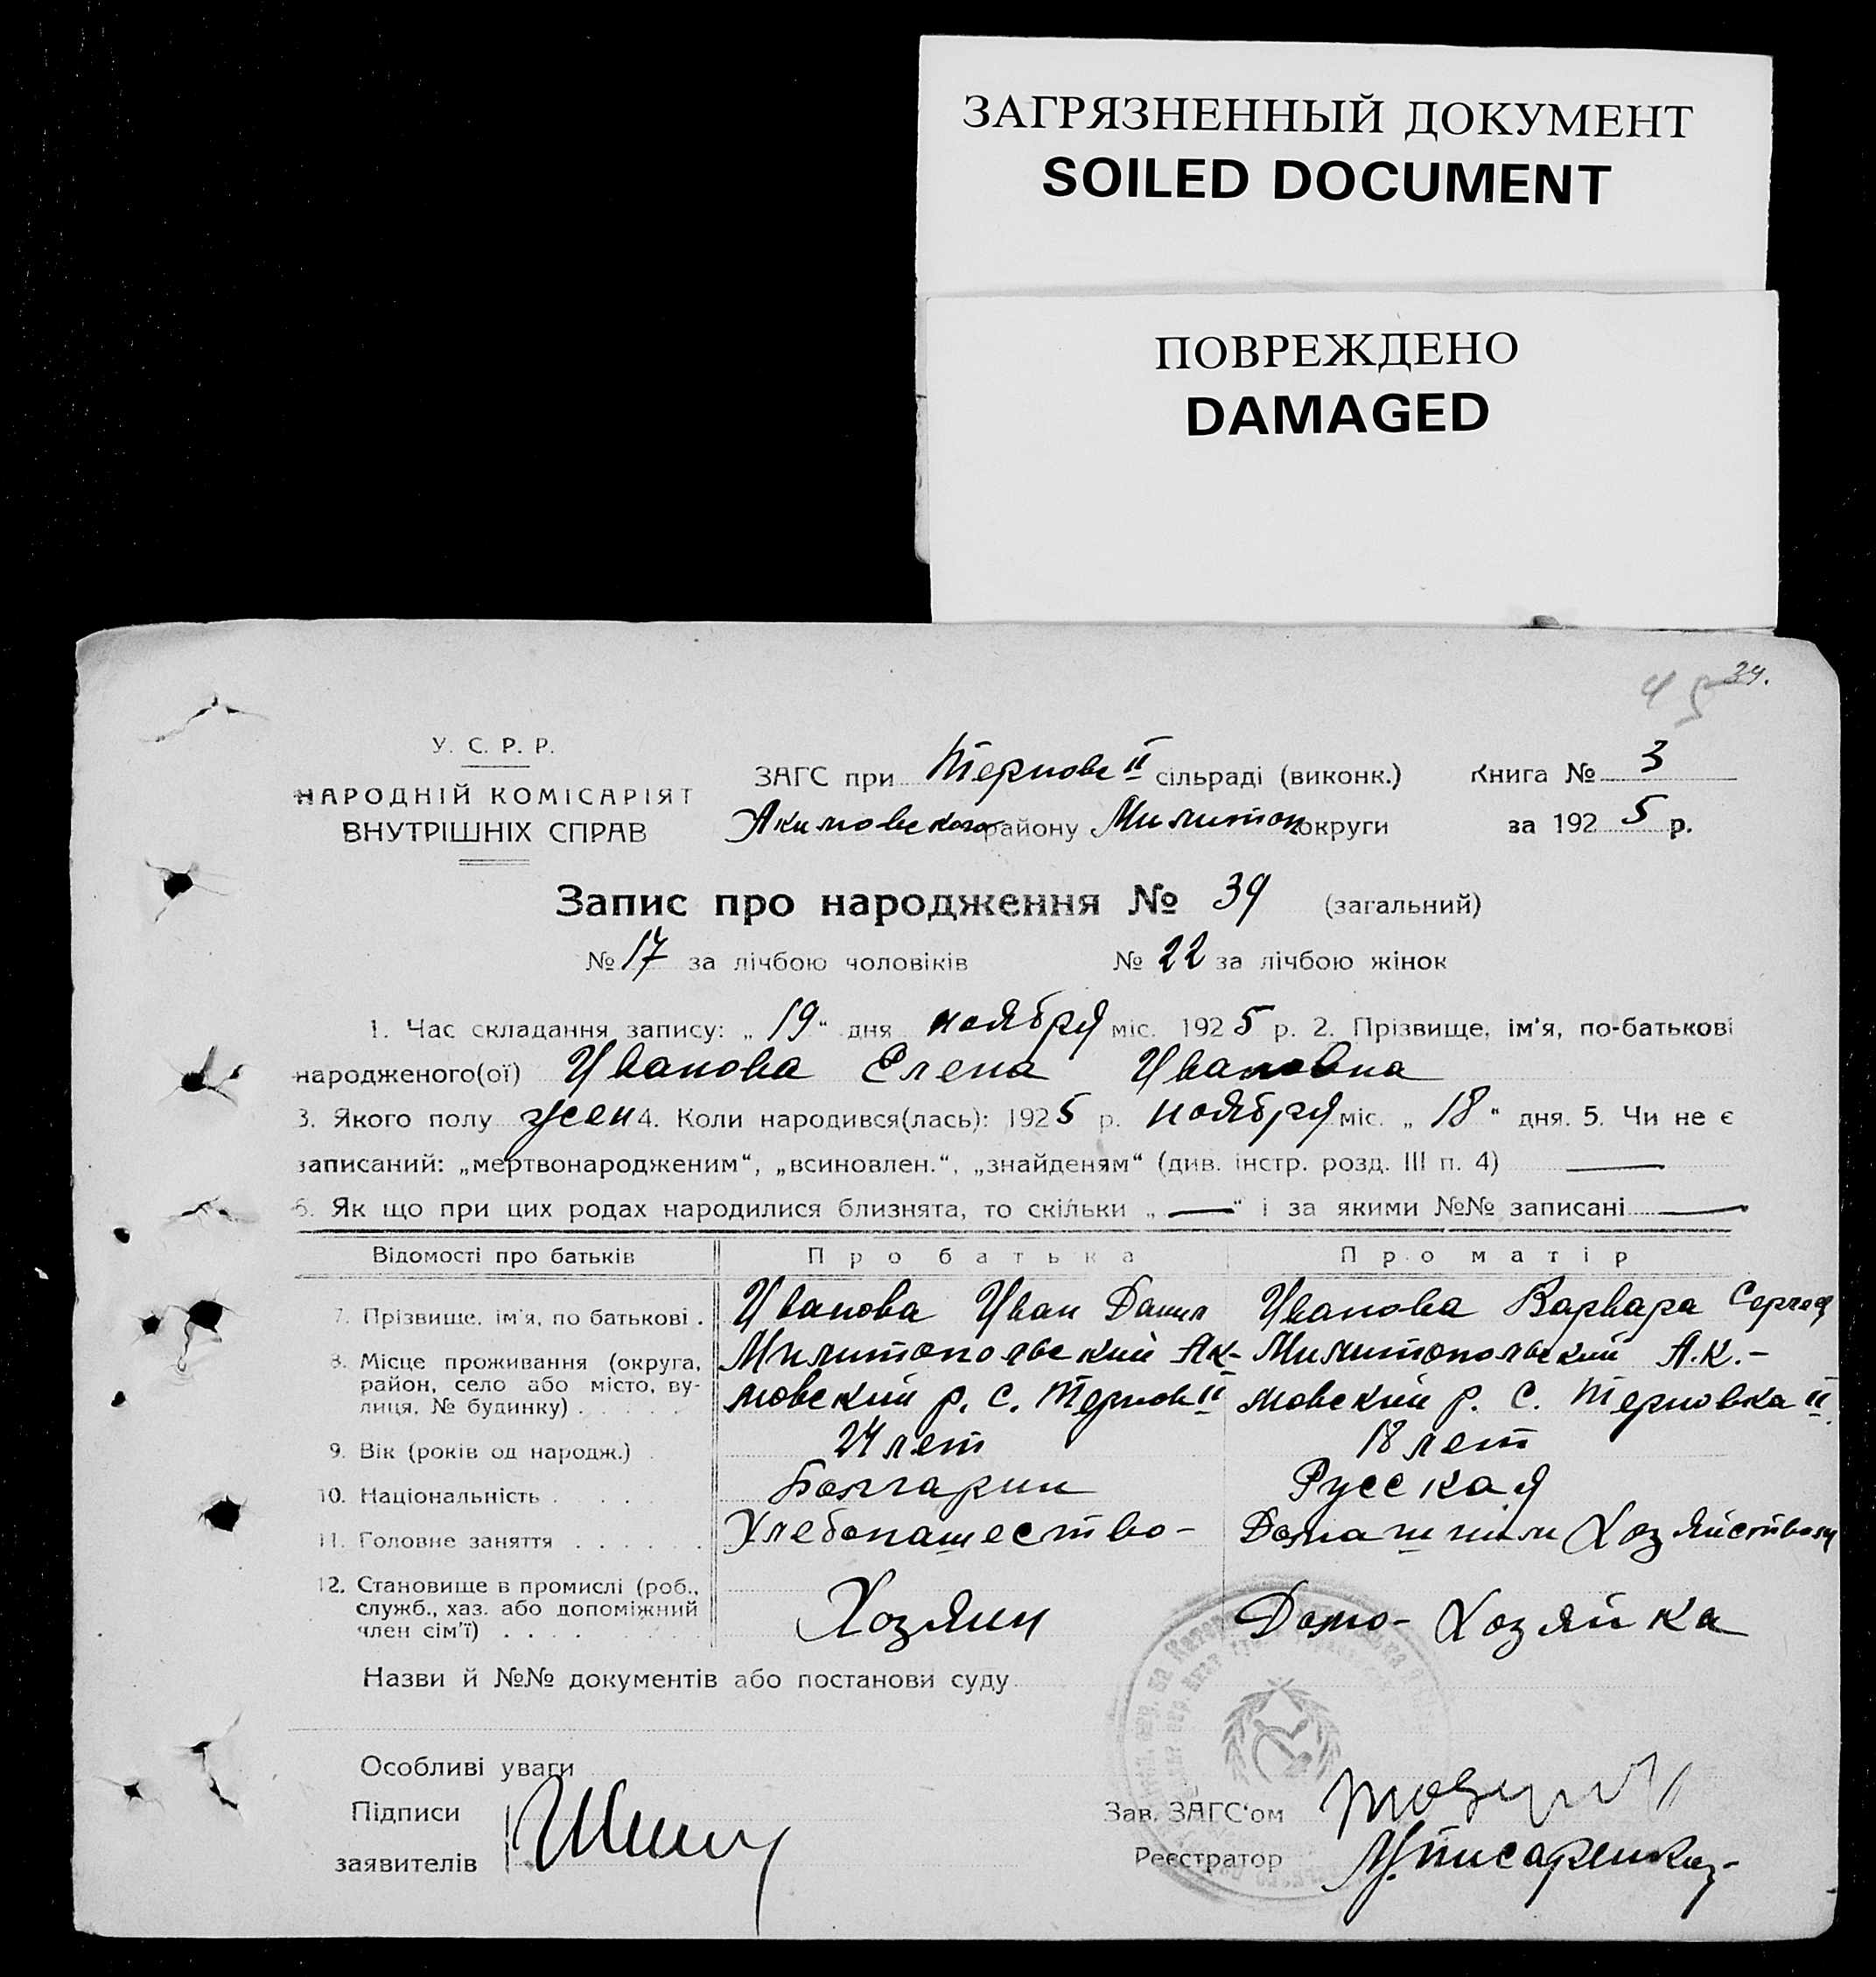 ЗАГРЯЗНЕННЫЙ ДОКУМЕНТ
SOILED DOCUMENT
ПОВРЕЖДЕНО
DAMAGED
45 34.
У. С. Р. Р.
НАРОДНІЙ КОМІСАРІЯТ
ВНУТРІШНІХ СПРАВ
ЗАГС при Тернов II сільраді (виконк.) Книга № 3
Акимовского району Милитоп округи за 1925 р.
Запис про народження № 39 (загальний)
№ 17 за лічбою чоловіків № 22 за лічбою жінок
1. Час складання запису: „19“ дня ноября міс. 1925 р. 2. Прізвище, ім'я, по-батькові
народженого(ої) Иванова Елена Ивановна
3. Якого полу жен 4. Коли народився(лась): 1925 р. ноября міс. „18“ дня. 5. Чи не є
записаний: „мертвонародженим“, „всиновлен.“, „знайденям“ (див. інстр. розд. III п. 4) —
6. Як що при цих родах народилися близнята, то скільки „—“ і за якими №№ записані —
Відомості про батьків Про батька Про матір
7. Прізвище, ім'я, по батькові . Иванова Иван Данил Иванова Варвара Сергеев
8. Місце проживання (округа, район, село або місто, вулиця, № будинку) . Милитопольский Ак- Милитопольский А.К.-
мовский р. С. Тернов II мовский р. С. Терновка II
9. Вік (років од народж.) . 24 лет 18 лет
10. Національність . . . . Болгарин Русская
11. Головне заняття . . . . . . Хлебопашество- Домашним Хозяйством
12. Становище в промислі (роб., служб., хаз. або допоміжний член сім'ї) . . . . Хозяин Домо-Хозяйка
Назви й №№ документів або постанови суду
Особливі уваги
Підписи
заявителів
Зав. ЗАГС'ом
Реєстратор Писаренко